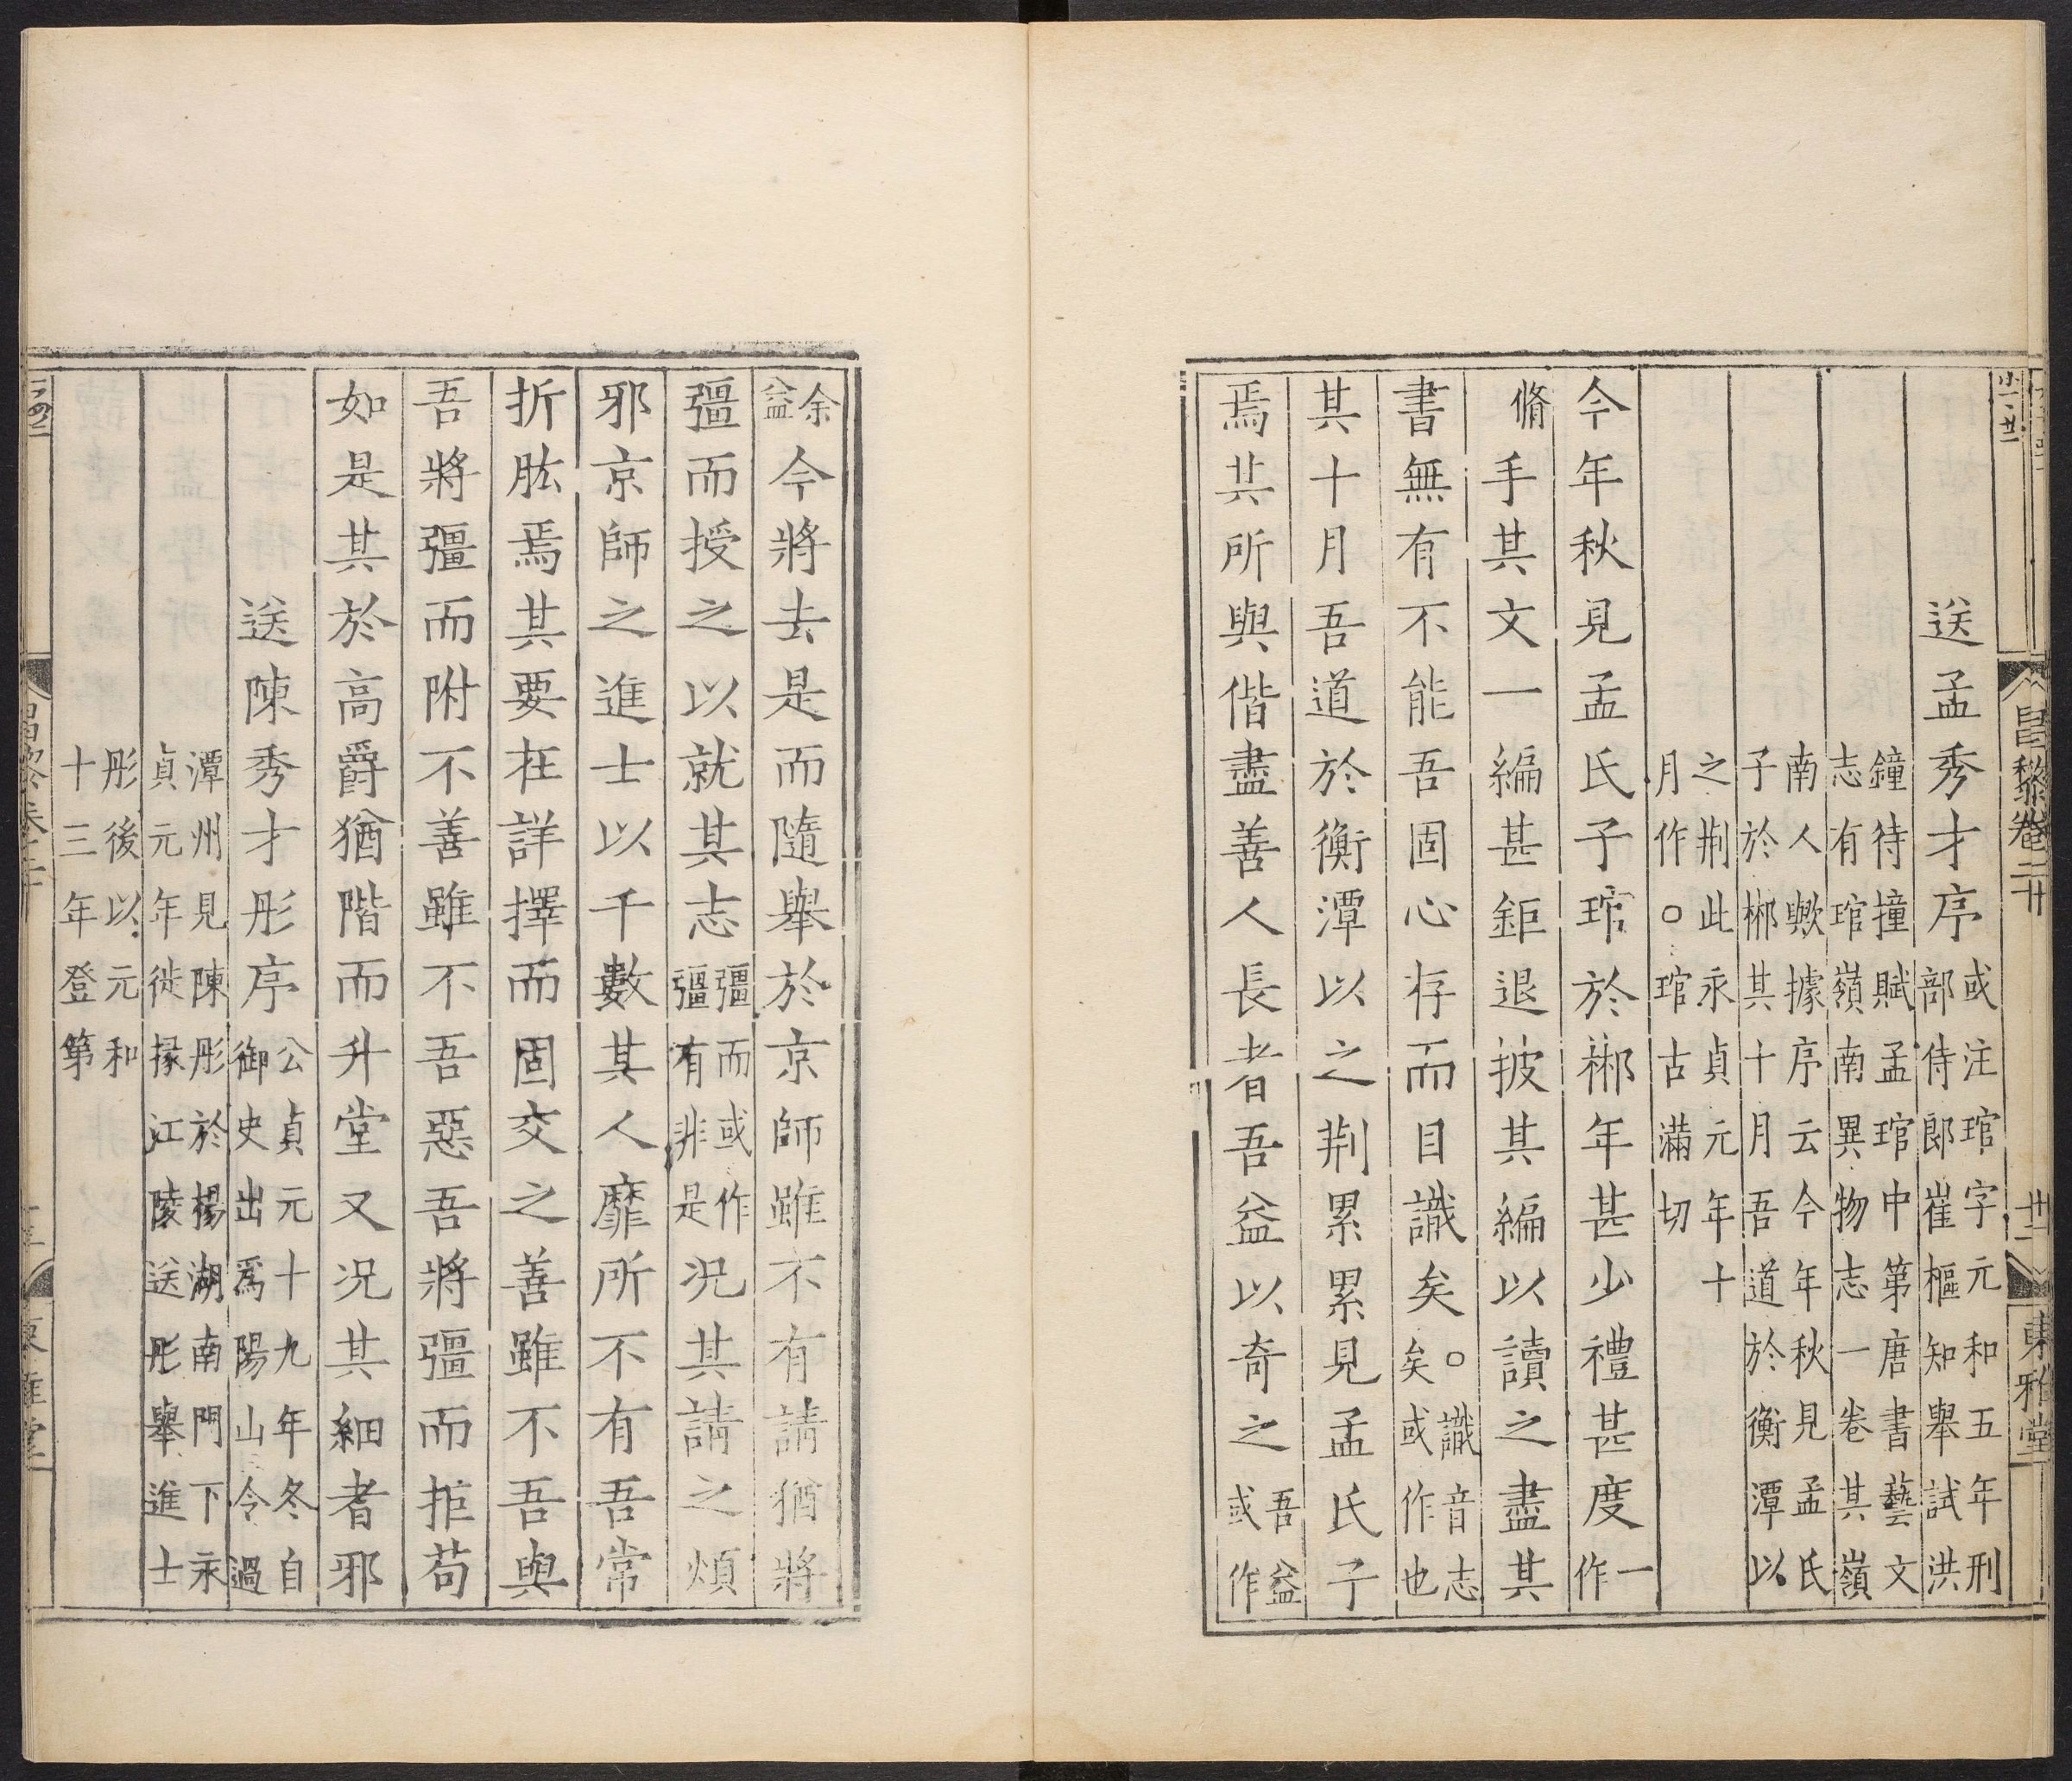 昌黎卷二十
廿一
東雅堂
送孟秀才序或注琯字元和五年刑部侍郎崔樞知舉試洪
鐘待撞賦孟琯中第唐書藝文志有琯嶺南異物志一卷其嶺
南人歟據序云今年秋見孟氏子於郴其十月吾道於衡潭以
之荆此永貞元年十月作○琯古滿切
今年秋見孟氏子琯於郴年甚少禮甚度一作
脩手其文一編甚鉅退披其編以讀之盡其
書無有不能吾固心存而目識矣○識音志矣或作也
其十月吾道於衡潭以之荆累累見孟氏子
焉其所與偕盡善人長者吾益以奇之吾益或作
余益今將去是而隨舉於京師雖不有請猶將
彊而授之以就其志彊而或作彊有非是況其請之煩
邪京師之進士以千數其人靡所不有吾常
折肱焉其要在詳擇而固交之善雖不吾與
吾將彊而附不善雖不吾惡吾將彊而拒苟
如是其於高爵猶階而升堂又況其細者邪
送陳秀才彤序公貞元十九年冬自御史出爲陽山令過
潭州見陳彤於楊湖南門下永貞元年徙掾江陵送彤舉進士
彤後以元和十三年登第